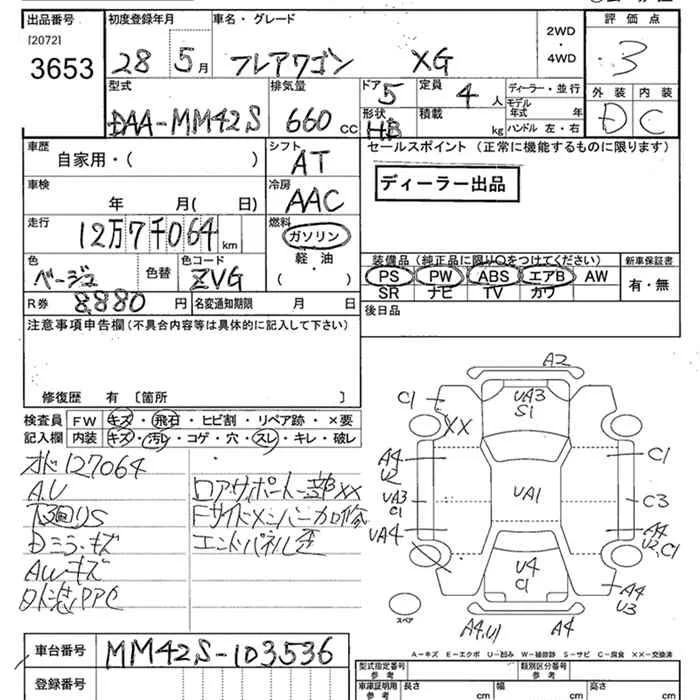 出品番号 初度登録年月 車名・グレード 評価点
[2072]
3653 28 5月 フレアワゴン XG 2WD ・ 4WD 3
型式 排気量 ドア 5 定員 4人 ディーラー・並行 外装 内装
DAA-MM42S 660cc 形状 HB 積載 kg モデル年式 年 ハンドル 左・右 D C
車歴 シフト セールスポイント (正常に機能するものに限ります)
自家用・( ) AT
ディーラー出品
車検 年 月( 日) 冷房 AAC
走行 12万7千064km 燃料 ガソリン 軽・油 ( )
色 ベージュ 色替 色コード ZVG
装備品 (純正品に限り○をつけてください) 新車保証書
PS PW ABS エアB AW 有・無
SR ナビ TV カワ
R券 8880円 名変通知期限 月 日 後日品
注意事項申告欄 (不具合内容等は具体的に記入して下さい)
修復歴 有 〔箇所 〕
検査員 FW キズ・飛石・ヒビ割・リペア跡・×要
記入欄 内装 キズ・汚レ・コゲ・穴・スレ・キレ・破レ
オド127064
A,U
下回りS
Dミラーキズ
AWキズ
外装PPC
ロアサポート一部XX
Fサイドメンバー加修
エンドパネル歪
A2
C1 UA3 S1
XX
A4 U2 C1
UA3 C1 UA1 C3
UA4 A4 U2,C1
U4 C1
A4 U3
スペア
A4,U1 A4
A-キズ E-エクボ U-凹み W-補修跡 S-サビ C-腐食 XX-交換済
車台番号 MM42S-103536
登録番号
型式指定番号 参考 類別区分番号 参考
車庫証明用 参考 長さ cm 幅 cm 高さ cm